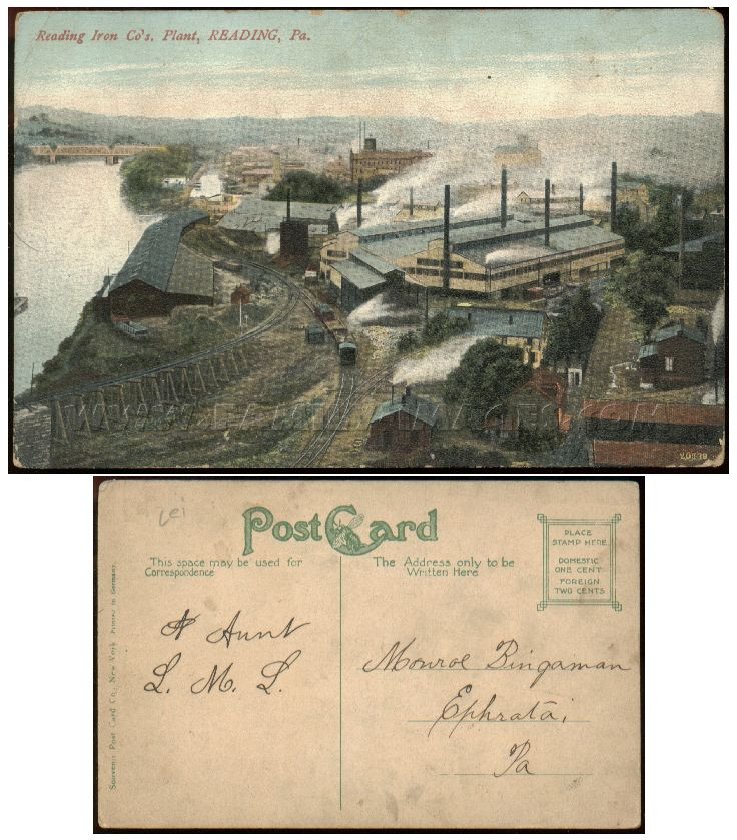 Reading Iron Co's. Plant, READING, Pa.
20339
Post Card
This space may be used for
Correspondence
The Address only to be
Written Here
PLACE
STAMP HERE
DOMESTIC
ONE CENT
FOREIGN
TWO CENTS
A Aunt
L. M. L.
Monroe Bingaman
Ephrata,
Pa
Souvenir Post Card Co., New York. Printed in Germany.